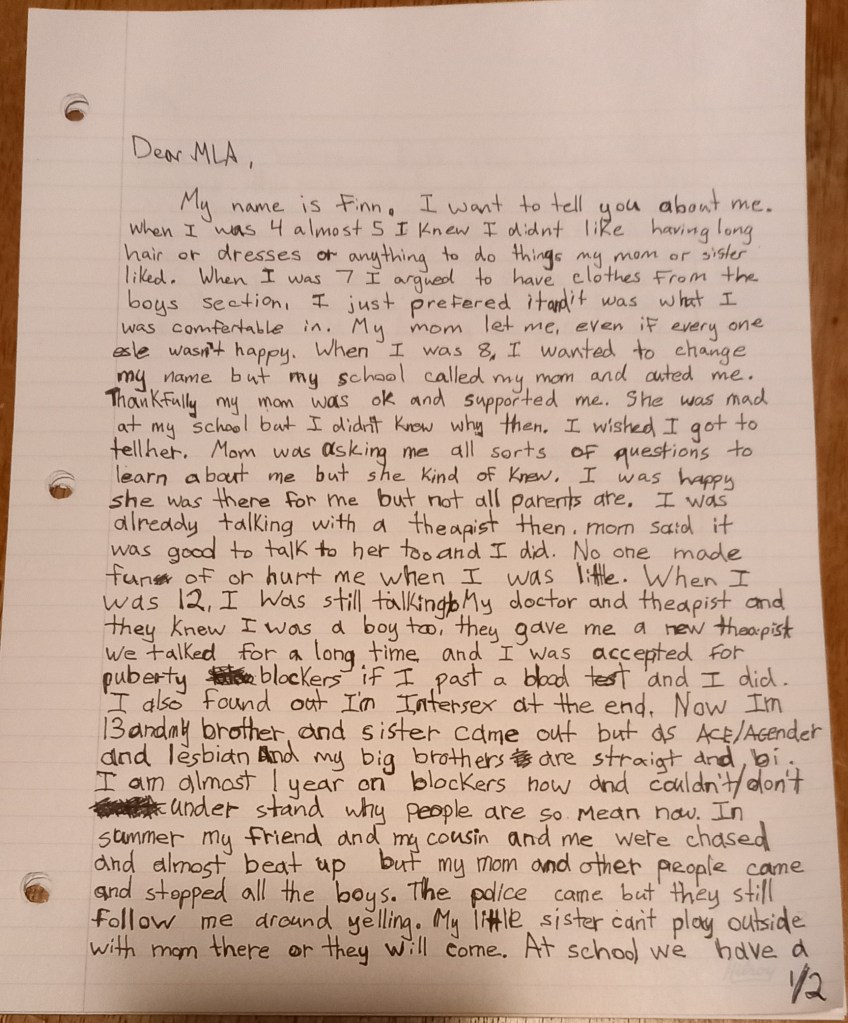 Dear MLA,
My name is Finn. I want to tell you about me.
When I was 4 almost 5 I knew I didnt like having long
hair or dresses or anything to do things my mom or sister
liked. When I was 7 I argued to have clothes from the
boys section, I just prefered it and it was what I
was comfertable in. My mom let me, even if every one
esle wasn't happy. When I was 8, I wanted to change
my name but my school called my mom and outed me.
Thankfully my mom was ok and supported me. She was mad
at my school but I didn't know why then. I wished I got to
tell her. Mom was asking me all sorts of questions to
learn about me but she kind of knew. I was happy
she was there for me but not all parents are. I was
already talking with a theapist then. mom said it
was good to talk to her too and I did. No one made
fun of or hurt me when I was little. When I
was 12, I was still talking to My doctor and theapist and
they knew I was a boy too, they gave me a new theapist
we talked for a long time and I was accepted for
puberty blockers if I past a blood test and I did.
I also found out I'm Intersex at the end. Now Im
13 and my brother and sister came out but as ACE/Agender
and lesbian and my big brothers are straigt and bi.
I am almost 1 year on blockers now and couldn't/don't
under stand why people are so mean now. In
summer my friend and my cousin and me were chased
and almost beat up but my mom and other people came
and stopped all the boys. The police came but they still
follow me around yelling. My little sister can't play outside
with mom there or they will come. At school we have a
1/2